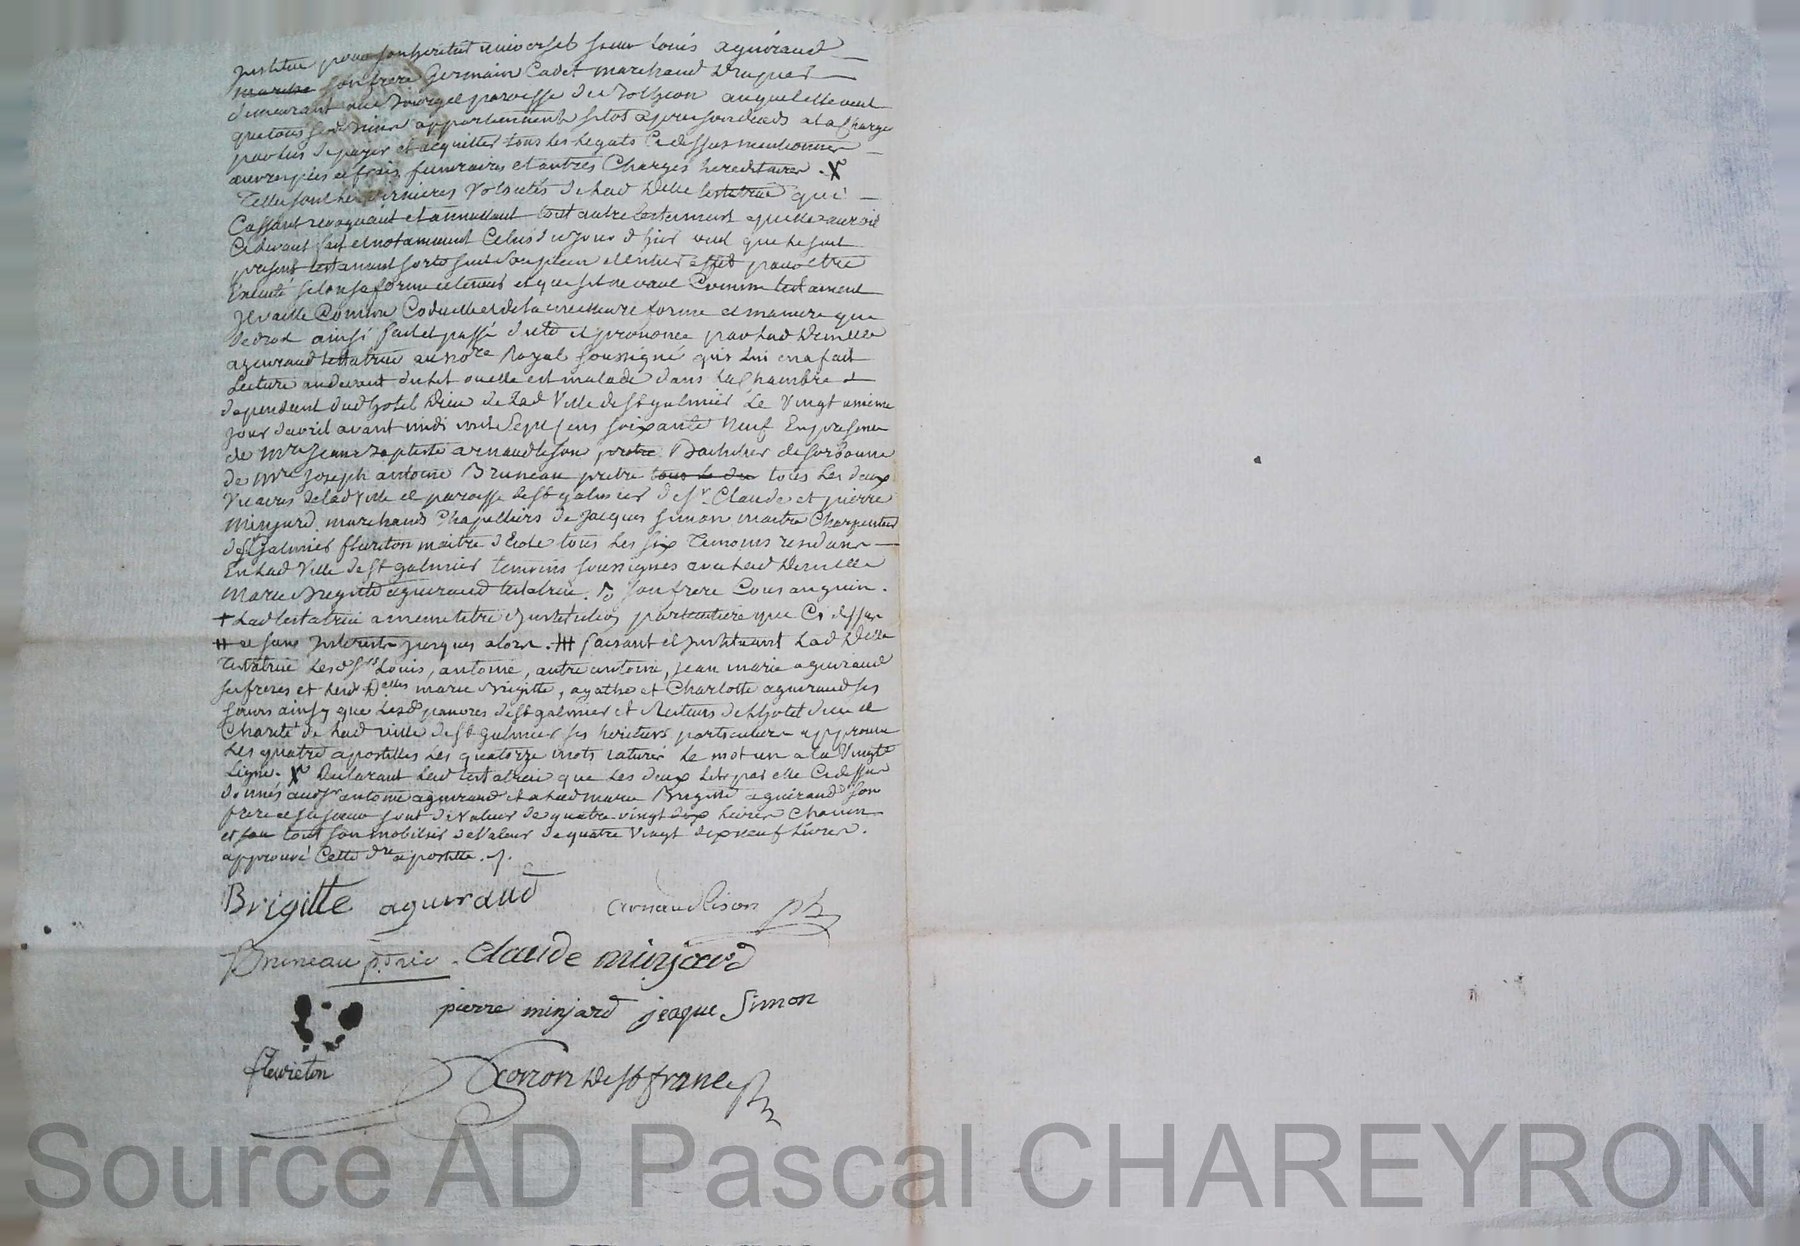 institue pour son heritier universel sieur Louis aguiraud
marchd son frere Germain Cadet marchand drapier
demeurant au Bourg et paroisse de auquel elle veut
que tous ses biens appartiennent sitot apres son deceds a la Charge
par lui de payer et acquitter tous les legats Cy dessus mentionnes
œuvres pies et frais funeraires et autres Charges hereditaires. X
Telles sont les dernieres volontés de lad Delle testatrice qui
Cassant revoquant et annullant tout autre testament qu'elle auroit
Cy devant fait et notamment Celui du jour d'hier veut que le sud
present testament sorte son plein et entier effet pour être
Executé selon sa forme et teneur et que s'il ne vaut Comme testament
il vaille Comme Codicille et de la meilleure forme et maniere que
de droit ainsi fait et passé dicté et prononcé par lad Demlle
aguiraud testatrice au nore Royal soussigné qui lui en a fait
Lecture au devant du lit ou elle est malade dans la Chambre
dependant dud hotel Dieu de lad Ville de St galmier Le Vingt unieme
jour d'avril avant midi mil sept Cens soixante Neuf En presence
de Mre Jean Baptiste arnaud lison pretre Bachelier de sorbonne
de Mre Joseph antoine Bruneau pretre tous les deux
Vicaires de lad Ville et paroisse de St galmier de Sr Claude et pierre
Minjard marchands Chapelliers de Jacques Simon maitre Charpentier
de St Galmier fleureton maitre d'Ecole tous les six Temoins residans
En lad Ville de St galmier temoins soussignes avec lad Demlle
Marie Brigitte aguiraud testatrice. son frere Consanguin.
+ Lad testatrice a meme titre d'institution particuliere que Cy dessus
# et sans interests jusques alors. ## faisant et instituant lad Delle
Testatrice Lesd Srs Louis, antoine, autre antoine, jean marie aguiraud
ses freres et lesd Delles marie Brigitte, agathe et Charlotte aguiraud ses
sœurs ainsy que Lesd pauvres de St galmier et Recteurs de l'hotel dieu et
Charité de lad ville de St galmier ses heritiers particuliers approuvé
Les quatre apostilles Les quatorze mots raturés Le mot un a la Vingte
Ligne. X Declarant lad testatrice que Les deux Lits par elle Cy dessus
donnés aud Sr antoine aguiraud et a lad marie Brigitte aguiraud son
frere et sa sœur sont de valeur de quatre vingt dix livres Chacun
et tout son mobilier de Valeur de quatre Vingt dix neuf livres.
approuvé Cette dre apostille.
Brigitte aguiraud arnaud lison
Bruneau ptre vic. Claude minjard
pierre minjard jeaque Simon
fleureton
Source AD Pascal CHAREYRON